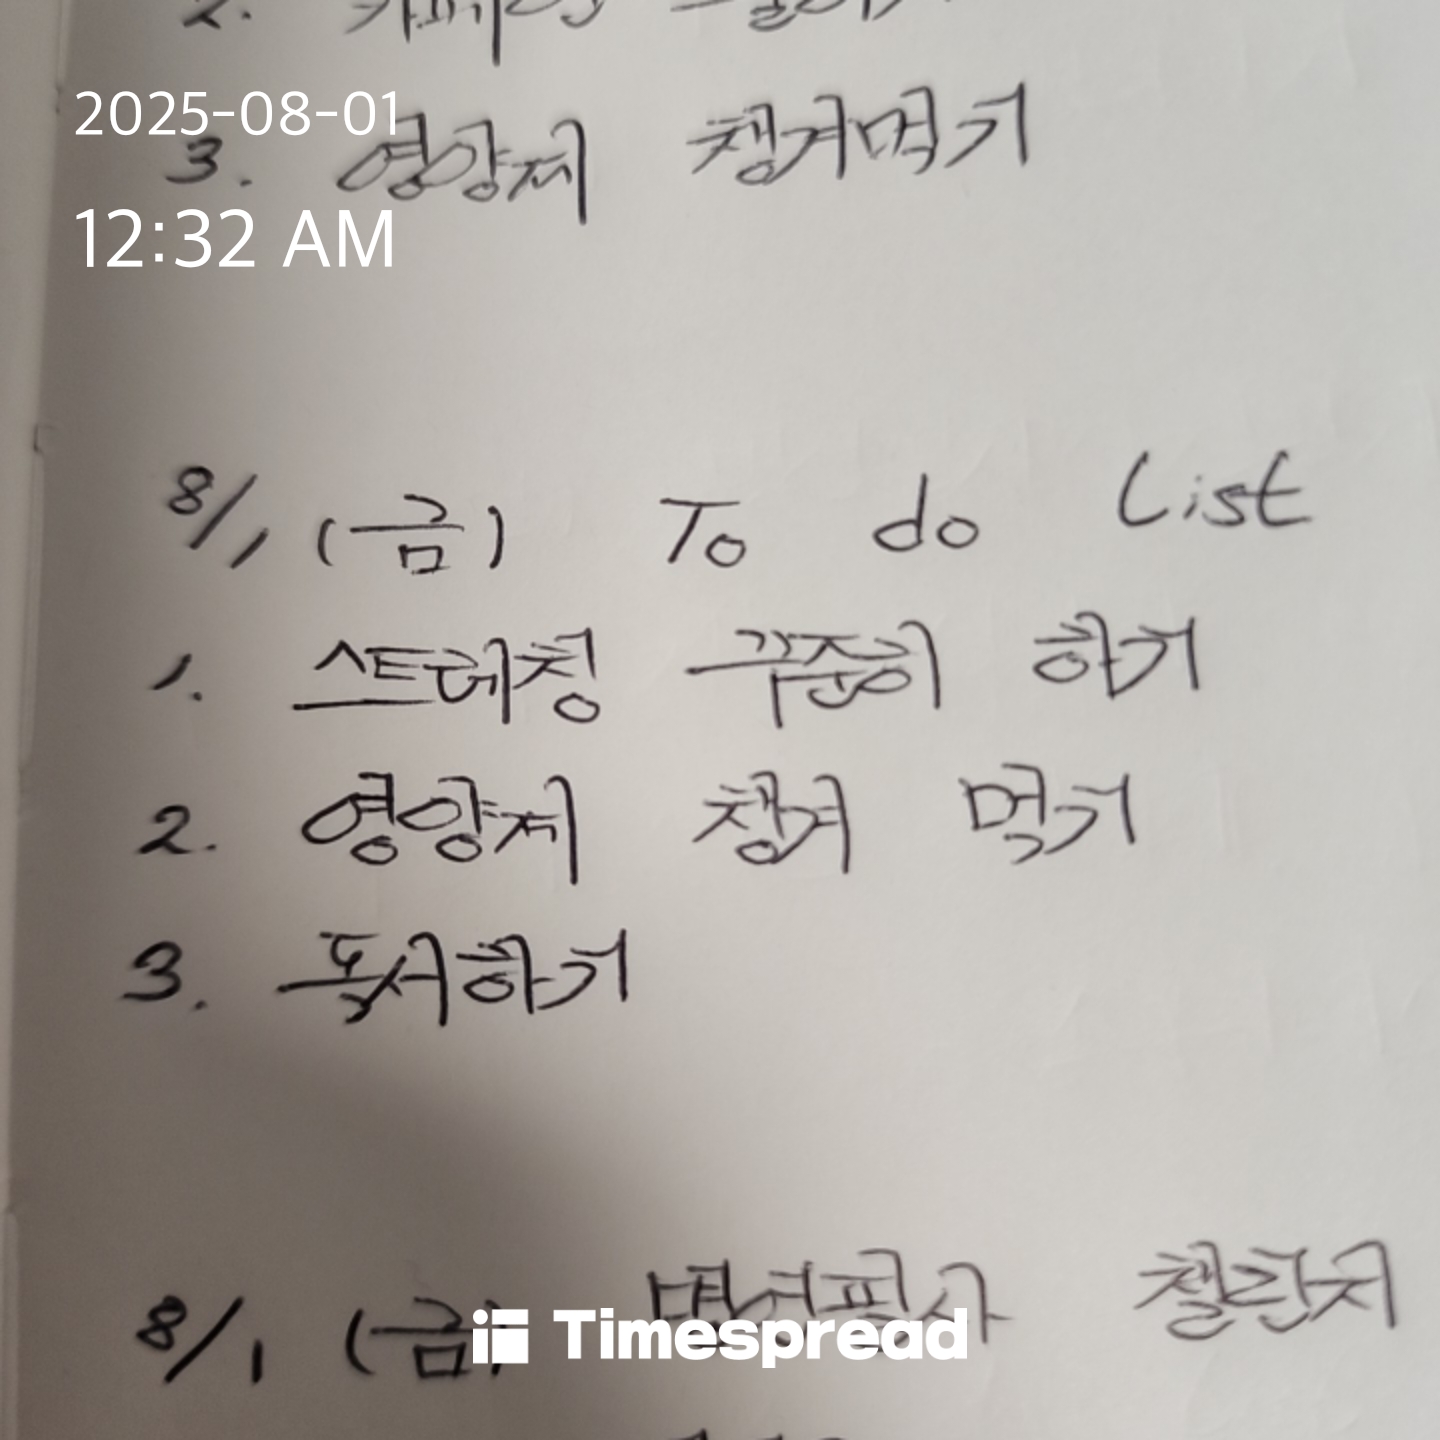 2.
2025-08-01
3. 영양제 챙겨먹기
12:32 AM
8/1 (금) To do List
1. 스트레칭 꾸준히 하기
2. 영양제 챙겨 먹기
3. 독서하기
8/1 (금) 명언필사 챌린지
Timespread